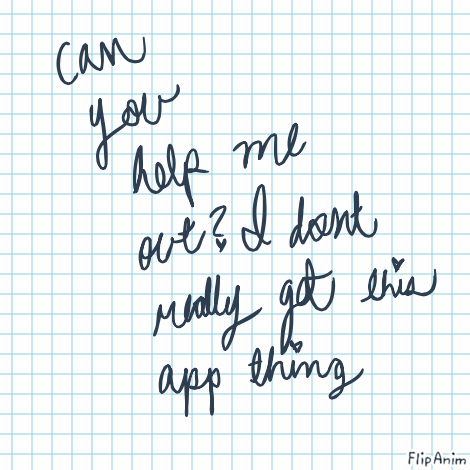 can
you
help me
out? I dont
really get this
app thing
FlipAnim